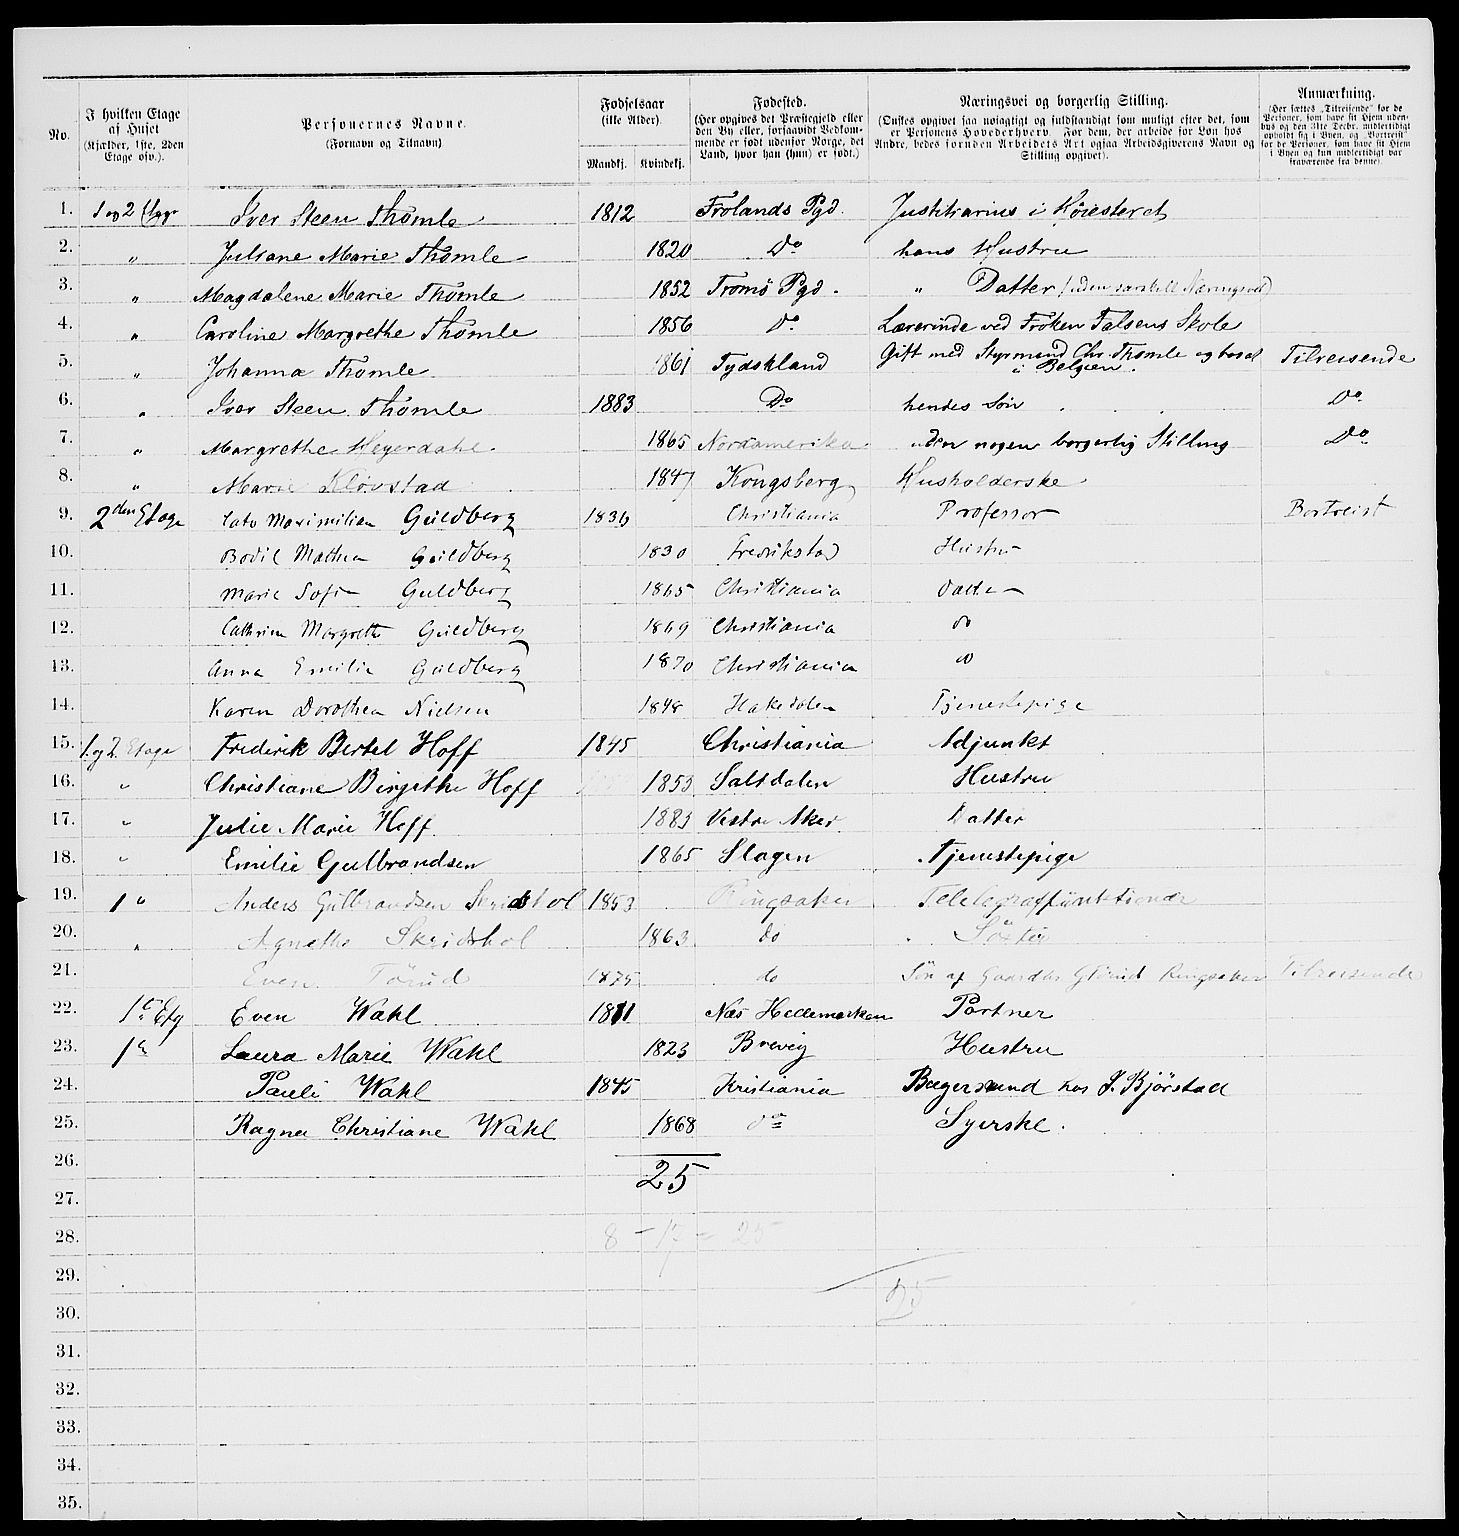 No. | I hvilken Etage af Huset (Kjælder, 1ste, 2den Etage osv.). | Personernes Navne. (Fornavn og Tilnavn) | Fødselsaar (ikke Alder). Mandkj. | Kvindekj. | Fødested. (Her opgives det Præstegjeld eller den By eller, forsaavidt Vedkommende er født udenfor Norge, det Land, hvor han (hun) er født.) | Næringsvei og borgerlig Stilling. (Ønskes opgivet saa nøiagtigt og fuldstændigt som muligt efter det, som er Personens Hovederhverv. For dem, der arbeide for Løn hos Andre, bedes foruden Arbeidets Art ogsaa Arbeidsgiverens Navn og Stilling opgivet). | Anmærkning. (Her sættes „Tilreisende" for de Personer, som have sit Hjem udenbys og den 31te Decbr. midlertidigt opholdt sig i Byen, og „Bortreist" for de Personer, som have sit Hjem i Byen og kun midlertidigt var fraværende fra denne).
1. 1 og 2 Iver Steen Thomle 1812 Frolands Pgd. Justitiarius i Høiesteret
2. „ Juliane Marie Thomle 1820 Do hans Hustru
3. „ Magdalene Marie Thomle 1852 Tromø Pgd. „ Datter (uden særskilt Næringsvei)
4. „ Caroline Margrethe Thomle 1856 Do Lærerinde ved Frøken Falsens Skole
5. „ Johanna Thomle. 1861 Tydskland Gift med Styrmand Chr. Thomle og bosat i Belgien. Tilreisende
6. „ Iver Steen Thomle 1883 Do hendes Søn Do
7. „ Margrethe Heyerdahl 1865 Nordamerika uden nogen borgerlig Stilling Do
8. „ Marie Kløvstad 1847 Kongsberg Husholderske
9. 2den Etage Cato Maximilian Guldberg 1836 Christiania Professor Bortreist
10. Bodil Mathea Guldberg 1830 Fredrikstad Hustru
11. Marie Sofie Guldberg 1865 Christiania Datter
12. Cathrine Margrethe Guldberg 1869 Christiania do
13. Anna Emilie Guldberg 1870 Christiania do
14. Karen Dorothea Nielsen 1848 Hakedalen Tjenestepige
15. 1 og 2 Etage Frederik Bertel Hoff 1845 Christiania Adjunkt
16. „ Christiane Birgithe Hoff 1853 Saltdalen Hustru
17. „ Julie Marie Hoff. 1883 Vestre Aker Datter
18. „ Emilie Gulbrandsen 1865 Slagen Tjenestepige
19. 1 „ Anders Gulbrandsen Skridshol 1853 Ringsaker Telegraffunktionær
20. „ Agnethe Skridshol 1863 do Søster
21. Even 1875 do Søn af Ringsaker Tilreisende
22. 1ste Etg Even Wahl 1811 Næs Hedemarken Portner
23. 1ste Laura Marie Wahl 1823 Brevig Hustru
24. Pauli Wahl 1845 Kristiania Bagersvend hos J. Bjørstad
25. Ragna Christiane Wahl 1868 do Syerske.
26. 25
27.
28. 8 – 17 = 25
29.
30. 25
31.
32.
33.
34.
35.